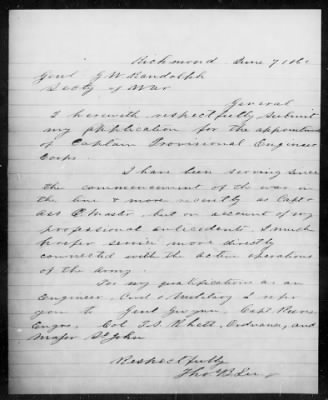 Richmond June 7 186
Genl G. W. Randolph
Secty of War
General
I herewith respectfully submit
my application for the appointment
of Captain Provisional Engineer
Corps.
I have been serving since
the commencement of the war in
the line & more recently as Capt &
Ass Q. Master, but on account of my
professional antecedents, I much
prefer service more directly
connected with the active operations
of the Army.
For my qualifications as an
Engineer, Civil & Military I refer
you to Genl Capt
Engrs, Col T. S. Rhett, Ordnance, and
Major St John
Respectfully
Tho B Lee